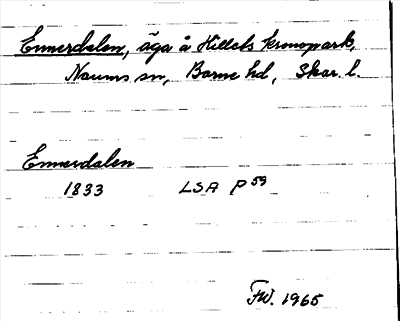 Ennerdalen, äga å Hillets kronopark,
Naums sn, Barne hd, Skar. l.
Ennerdalen
1833 LSA P 59
FW. 1965